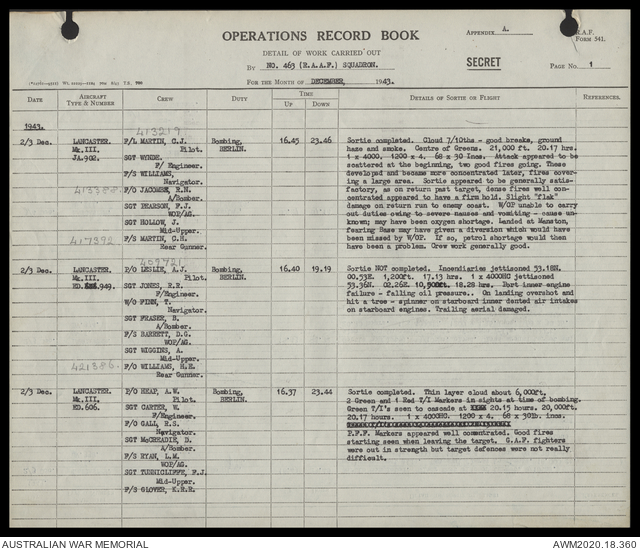 OPERATIONS RECORD BOOK
APPENDIX A.
R.A.F.
FORM 541.
DETAIL OF WORK CARRIED OUT
BY NO. 463 (R.A.A.F.) SQUADRON.
SECRET
PAGE NO. 1
FOR THE MONTH OF DECEMBER, 1943.
DATE
AIRCRAFT TYPE & NUMBER
CREW
DUTY
TIME
UP
DOWN
DETAILS OF SORTIE OR FLIGHT
REFERENCES.
1943.
2/3 Dec.
LANCASTER.
Mk.III.
JA.902.
413219
F/L MARTIN, C.J.
Pilot.
SGT WYNDE.
F/Engineer.
F/S WILLIAMS,
Navigator.
413388
F/O JACOMBE, R.N.
A/Bomber.
SGT PEARSON, F.J.
WOP/AG.
SGT HOLLOW, J.
Mid-Upper.
417392
F/S MARTIN, C.H.
Rear Gunner.
Bombing,
BERLIN.
16.45
23.46
Sortie completed. Cloud 7/10ths - good breaks, ground
haze and smoke. Centre of Greens. 21,000 ft. 20.17 hrs.
1 x 4000. 1200 x 4. 68 x 30 Incs. Attack appeared to be
scattered at the beginning, two good fires going. These
developed and became more concentrated later, fires cover-
ing a large area. Sortie appeared to be generally satis-
factory, as on return past target, dense fires well con-
centrated appeared to have a firm hold. Slight "flak"
damage on return run to enemy coast. W/OP unable to carry
out duties owing to severe nausea and vomiting - cause un-
known; may have been oxygen shortage. Landed at Manston,
fearing Base may have given a diversion which would have
been missed by W/OP. If so, petrol shortage would then
have been a problem. Crew work generally good.
2/3 Dec.
LANCASTER.
Mk.III.
ED. 949.
409721
P/O LESLIE, A.J.
Pilot.
SGT JONES, R.R.
F/Engineer.
W/O FINN, T.
Navigator.
SGT FRASER, B.
A/Bomber.
F/S BARRETT, D.G.
WOP/AG.
SGT WIGGINS, A.
Mid-Upper.
421386
F/O WILLIAMS, H.E.
Rear Gunner.
Bombing,
BERLIN.
16.40
19.19
Sortie NOT completed. Incendiaries jettisoned 53.18N.
00.53E. 1,200ft. 17.13 hrs. 1 x 4000HC jettisoned
53.36N. 02.26E. 10,500ft. 18.28 hrs. Port inner engine
failure - falling oil pressure. On landing overshot and
hit a tree - spinner on starboard inner dented air intakes
on starboard engines. Trailing aerial damaged.
2/3 Dec.
LANCASTER.
Mk.III.
ED.606.
P/O HEAP, A.W.
Pilot.
SGT CARTER, W.
F/Engineer.
F/O GALL, R.S.
Navigator.
SGT McCREADIE, D.
A/Bomber.
F/S RYAN, L.M.
WOP/AG.
SGT TURNICLIFFE, F.J.
Mid-Upper.
F/S GLOVER, K.R.R.
Bombing,
BERLIN.
16.37
23.44
Sortie completed. Thin layer cloud about 6,000ft,
2 Green and 1 Red T/I Markers in sights at time of bombing.
Green T/I's seen to cascade at 20.15 hours, 20,000ft.
20.17 hours. 1 x 4000HC. 1200 x 4. 68 x 30lb. incs.
P.F.F. Markers appeared well concentrated. Good fires
starting seen when leaving the target. G.A.F. fighters
were out in strength but target defences were not really
difficult.
AUSTRALIAN WAR MEMORIAL
AWM2020.18.360